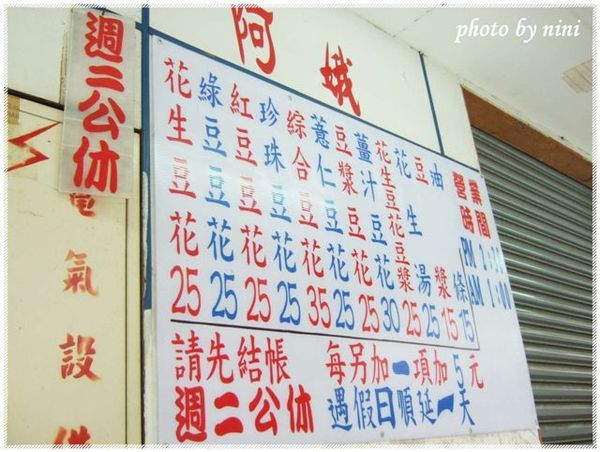 photo by nini
阿娥
週二公休
電氣設備
花生豆花25
綠豆豆花25
紅豆豆花25
珍珠豆花25
綜合豆花35
薏仁豆花25
豆漿豆花25
薑汁豆花30
花生豆花豆漿25
花生湯25
豆漿15
油條15
營業時間
PM
AM 1:00
請先結帳 每另加一項加5元
週二公休 遇假日順延一天